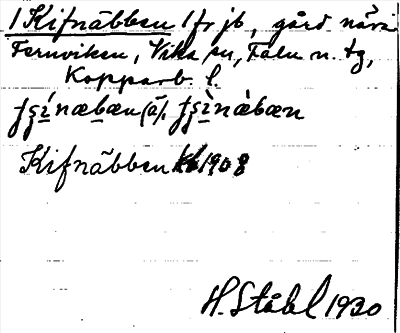 1 Kifnäbben 1 fr jb, gård nära
Fernviken, Vika sn, Falu n. tg,
Kopparb. l.
Kifnäbben kb 1908
H. Ståhl 1930